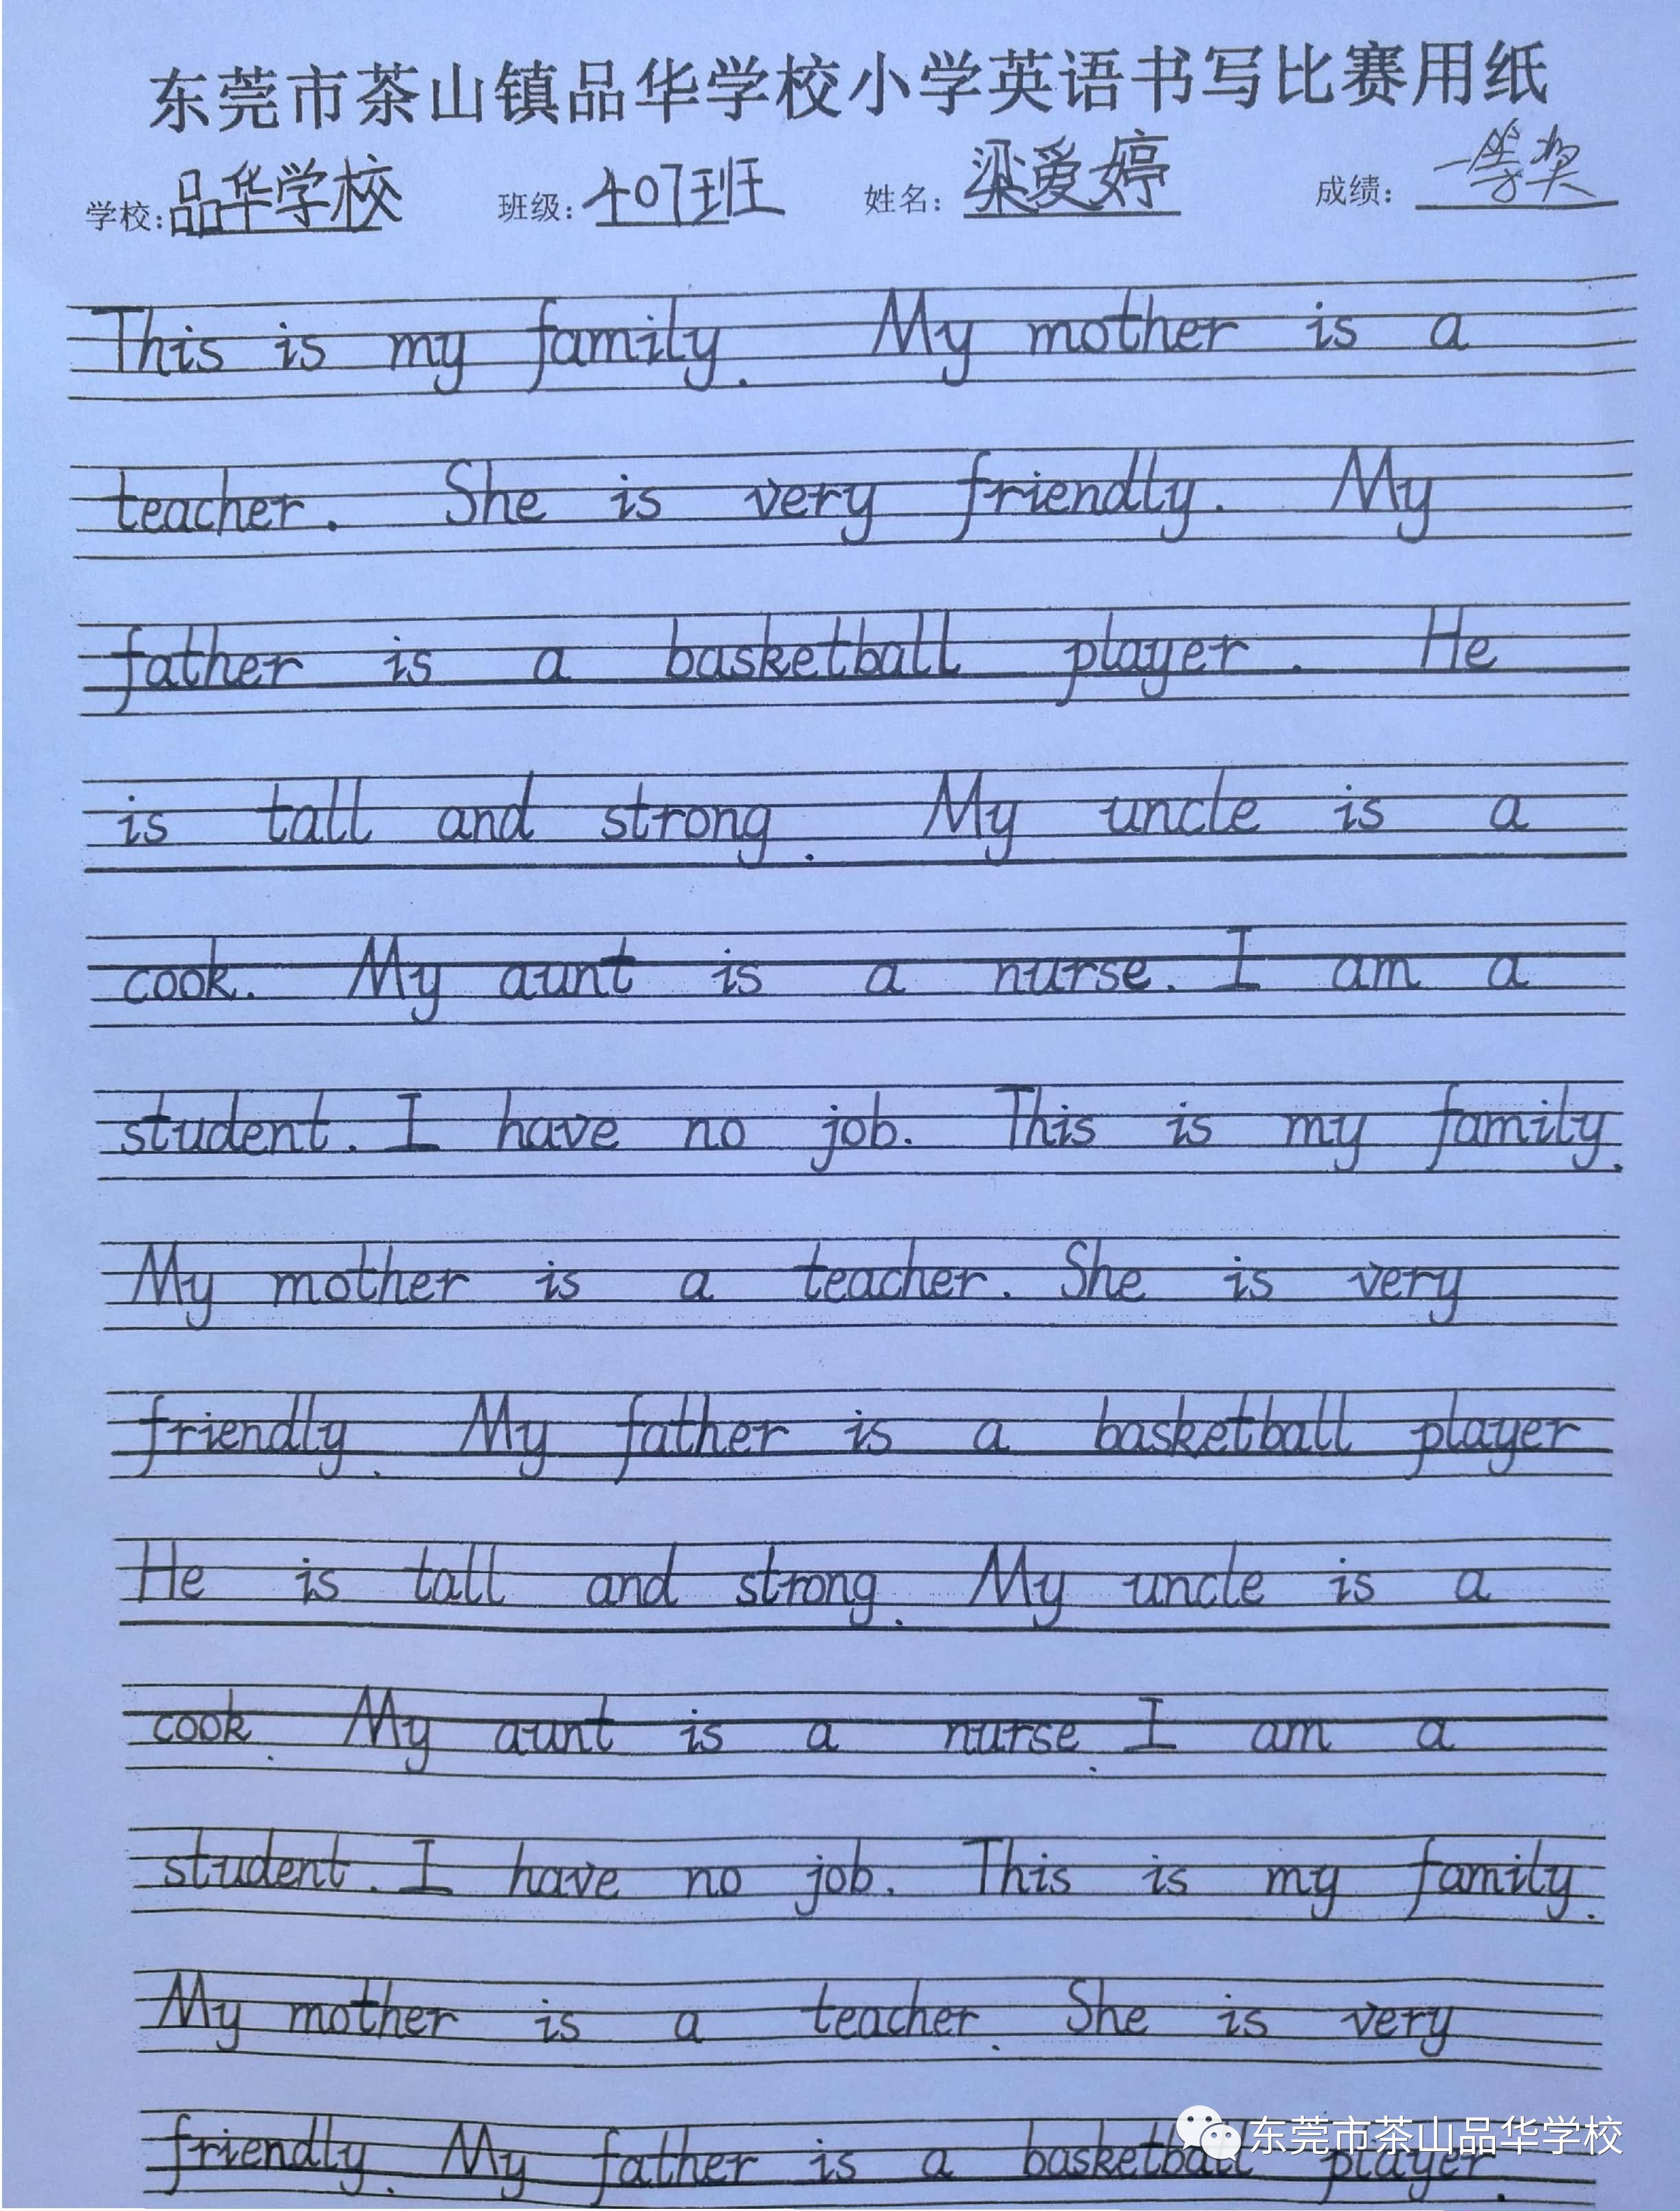 东莞市茶山镇品华学校小学英语书写比赛用纸
学校:品华学校 班级:407班 姓名:梁爱婷 成绩:一等奖
This is my family. My mother is a
teacher. She is very friendly. My
father is a basketball player. He
is tall and strong. My uncle is a
cook. My aunt is a nurse. I am a
student. I have no job. This is my family.
My mother is a teacher. She is very
friendly. My father is a basketball player
He is tall and strong. My uncle is a
cook. My aunt is a nurse. I am a
student. I have no job. This is my family.
My mother is a teacher. She is very
friendly. My father is a basketball player.
东莞市茶山品华学校